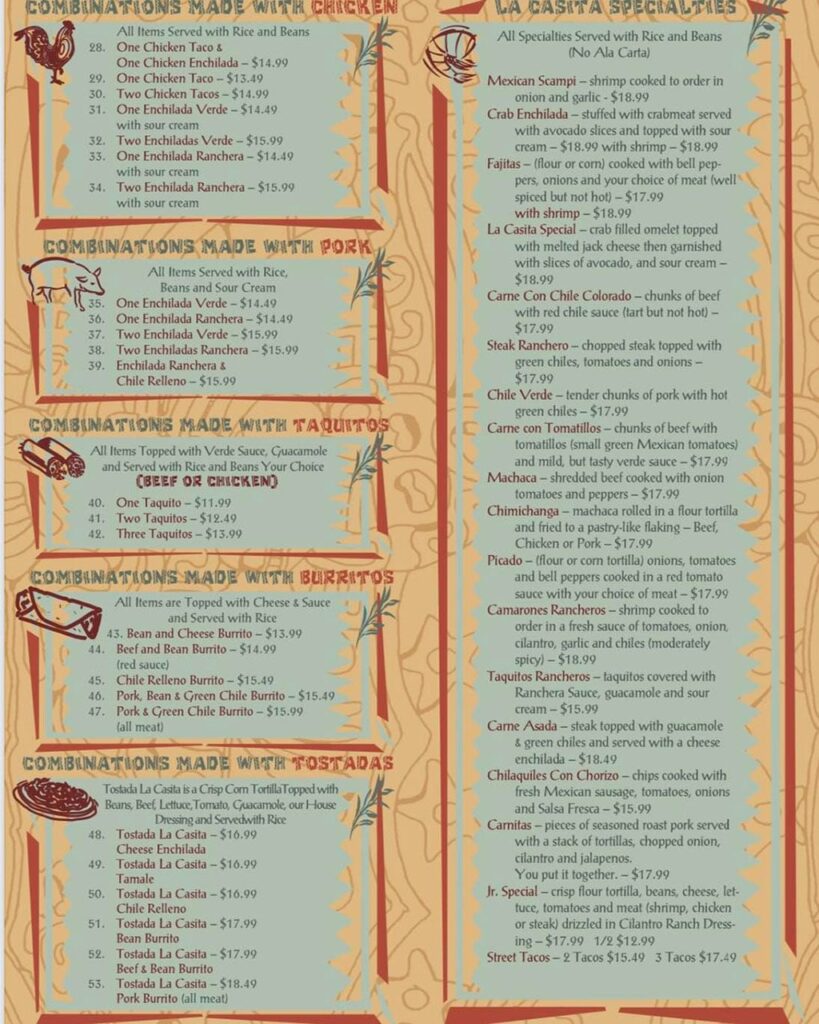 COMBINATIONS MADE WITH CHICKEN
All Items Served with Rice and Beans
28. One Chicken Taco &
One Chicken Enchilada – $14.99
29. One Chicken Taco – $13.49
30. Two Chicken Tacos – $14.99
31. One Enchilada Verde – $14.49
with sour cream
32. Two Enchiladas Verde – $15.99
33. One Enchilada Ranchera – $14.49
with sour cream
34. Two Enchilada Ranchera – $15.99
with sour cream
COMBINATIONS MADE WITH PORK
All Items Served with Rice,
Beans and Sour Cream
35. One Enchilada Verde – $14.49
36. One Enchilada Ranchera – $14.49
37. Two Enchilada Verde – $15.99
38. Two Enchiladas Ranchera – $15.99
39. Enchilada Ranchera &
Chile Relleno – $15.99
COMBINATIONS MADE WITH TAQUITOS
All Items Topped with Verde Sauce, Guacamole
and Served with Rice and Beans Your Choice
(BEEF OR CHICKEN)
40. One Taquito – $11.99
41. Two Taquitos – $12.49
42. Three Taquitos – $13.99
COMBINATIONS MADE WITH BURRITOS
All Items are Topped with Cheese & Sauce
and Served with Rice
43. Bean and Cheese Burrito – $13.99
44. Beef and Bean Burrito – $14.99
(red sauce)
45. Chile Relleno Burrito – $15.49
46. Pork, Bean & Green Chile Burrito – $15.49
47. Pork & Green Chile Burrito – $15.99
(all meat)
COMBINATIONS MADE WITH TOSTADAS
Tostada La Casita is a Crisp Corn TortillaTopped with
Beans, Beef, Lettuce,Tomato, Guacamole, our House
Dressing and Servedwith Rice
48. Tostada La Casita – $16.99
Cheese Enchilada
49. Tostada La Casita – $16.99
Tamale
50. Tostada La Casita – $16.99
Chile Relleno
51. Tostada La Casita – $17.99
Bean Burrito
52. Tostada La Casita – $17.99
Beef & Bean Burrito
53. Tostada La Casita – $18.49
Pork Burrito (all meat)
LA CASITA SPECIALTIES
All Specialties Served with Rice and Beans
(No Ala Carta)
Mexican Scampi – shrimp cooked to order in
onion and garlic - $18.99
Crab Enchilada – stuffed with crabmeat served
with avocado slices and topped with sour
cream – $18.99 with shrimp – $18.99
Fajitas – (flour or corn) cooked with bell pep-
pers, onions and your choice of meat (well
spiced but not hot) – $17.99
with shrimp – $18.99
La Casita Special – crab filled omelet topped
with melted jack cheese then garnished
with slices of avocado, and sour cream –
$18.99
Carne Con Chile Colorado – chunks of beef
with red chile sauce (tart but not hot) –
$17.99
Steak Ranchero – chopped steak topped with
green chiles, tomatoes and onions –
$17.99
Chile Verde – tender chunks of pork with hot
green chiles – $17.99
Carne con Tomatillos – chunks of beef with
tomatillos (small green Mexican tomatoes)
and mild, but tasty verde sauce – $17.99
Machaca – shredded beef cooked with onion
tomatoes and peppers – $17.99
Chimichanga – machaca rolled in a flour tortilla
and fried to a pastry-like flaking – Beef,
Chicken or Pork – $17.99
Picado – (flour or corn tortilla) onions, tomatoes
and bell peppers cooked in a red tomato
sauce with your choice of meat – $17.99
Camarones Rancheros – shrimp cooked to
order in a fresh sauce of tomatoes, onion,
cilantro, garlic and chiles (moderately
spicy) – $18.99
Taquitos Rancheros – taquitos covered with
Ranchera Sauce, guacamole and sour
cream – $15.99
Carne Asada – steak topped with guacamole
& green chiles and served with a cheese
enchilada – $18.49
Chilaquiles Con Chorizo – chips cooked with
fresh Mexican sausage, tomatoes, onions
and Salsa Fresca – $15.99
Carnitas – pieces of seasoned roast pork served
with a stack of tortillas, chopped onion,
cilantro and jalapenos.
You put it together. – $17.99
Jr. Special – crisp flour tortilla, beans, cheese, let-
tuce, tomatoes and meat (shrimp, chicken
or steak) drizzled in Cilantro Ranch Dress-
ing – $17.99 1/2 $12.99
Street Tacos – 2 Tacos $15.49 3 Tacos $17.49